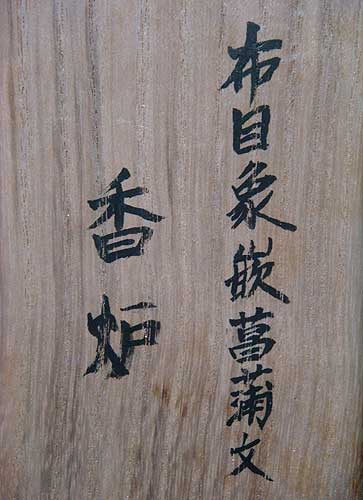 布目象嵌菖蒲文
香炉